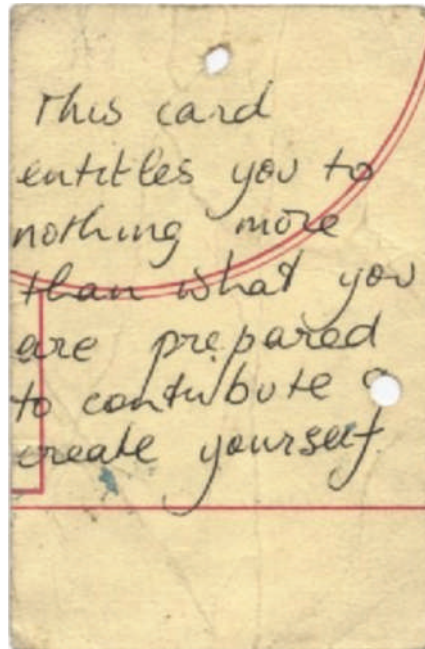 This card
entitles you to
nothing more
than what you
are prepared
to contribute
create yourself.